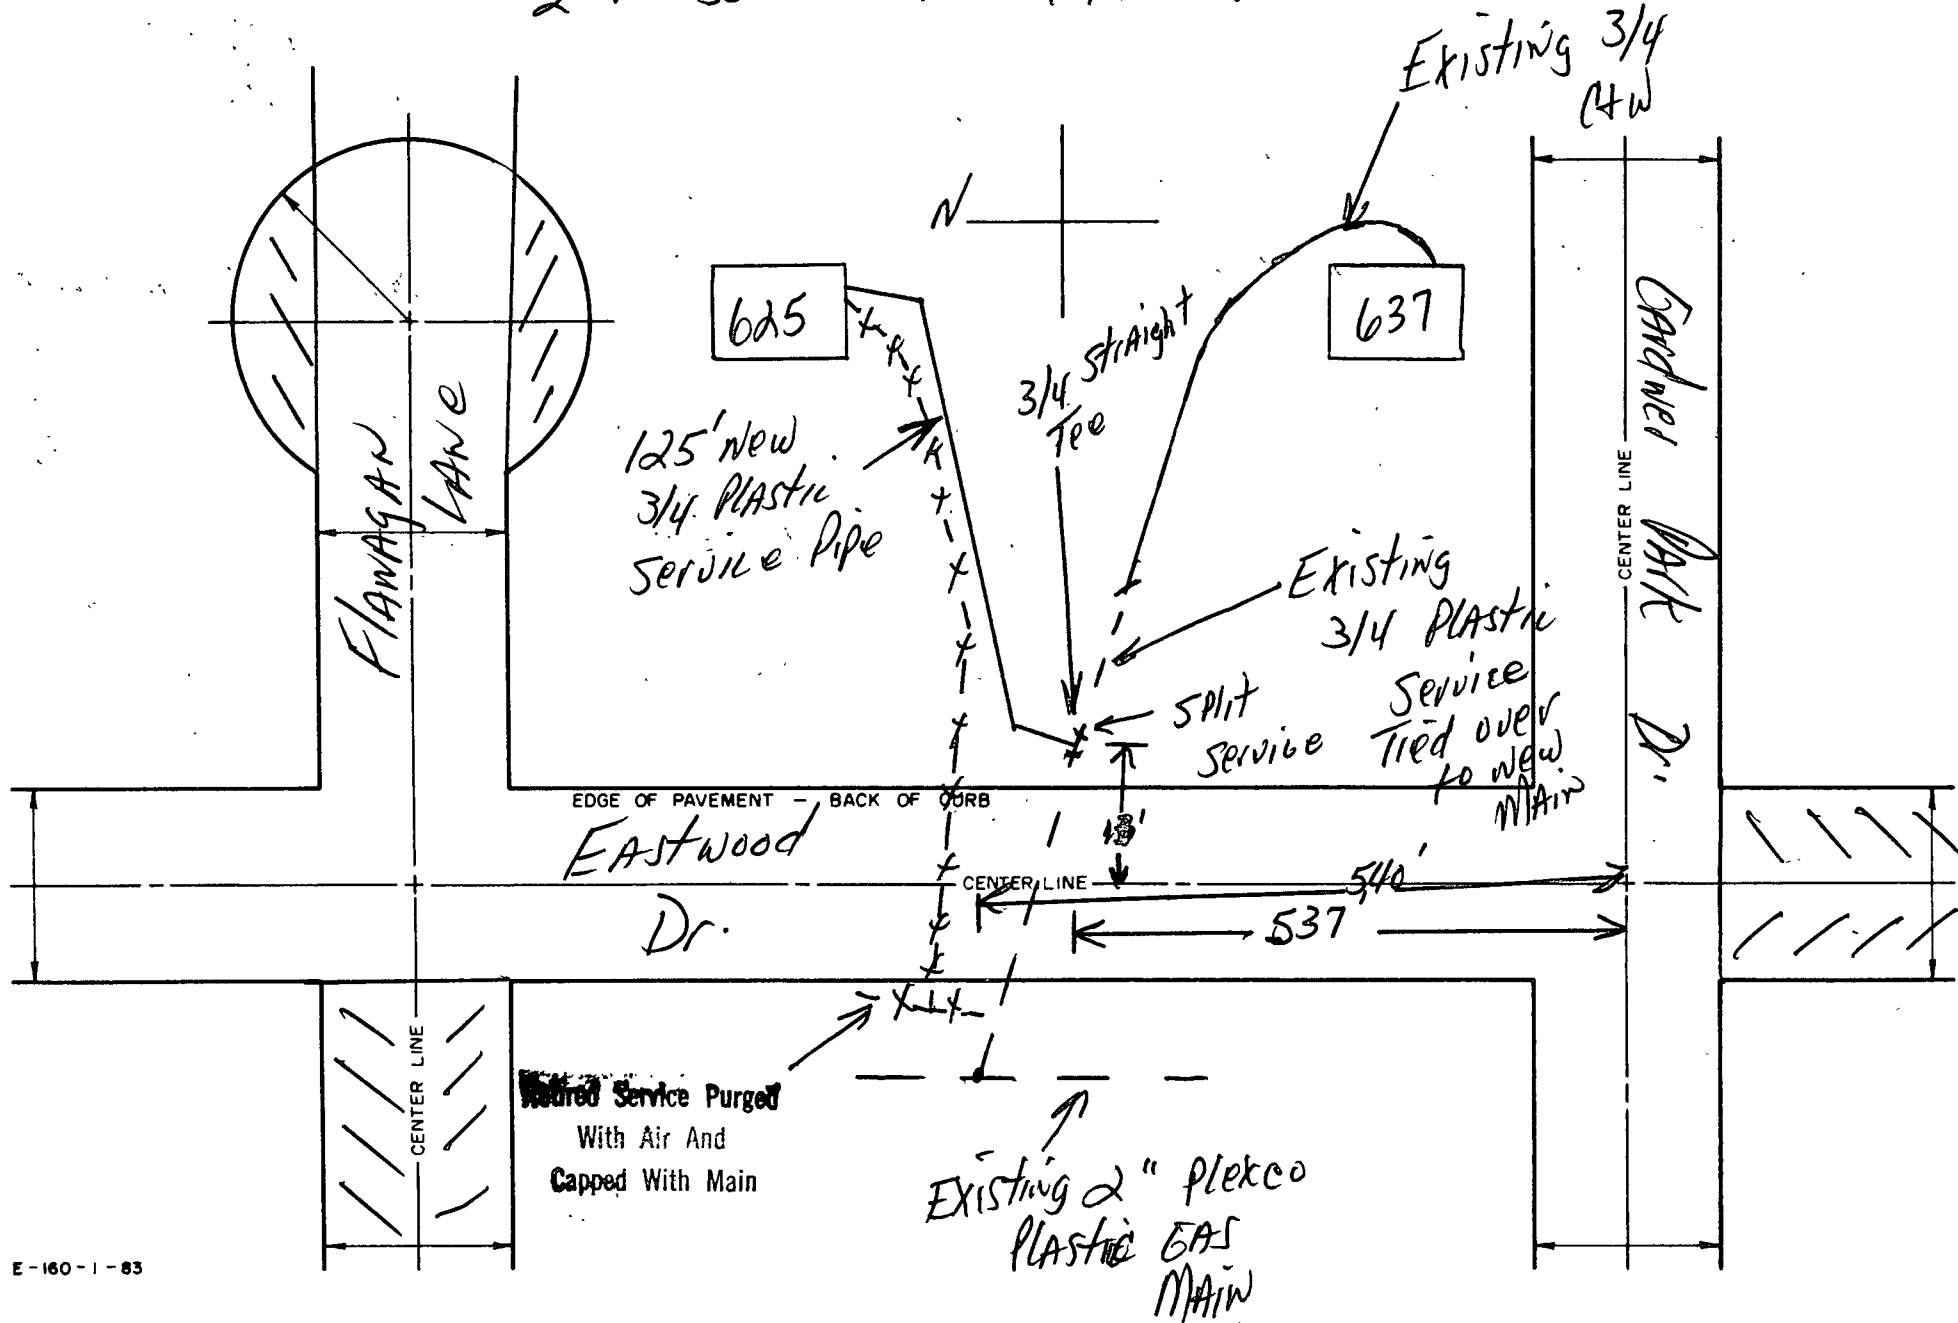 Existing 3/4
C+W
N
625
637
3/4 Straight
Tee
125' New
3/4 Plastic
Service Pipe
Flanagan
Lane
Gardner Park Dr.
CENTER LINE
Existing
3/4 Plastic
Service
Tied over
to New
Main
Split
Service
EDGE OF PAVEMENT - BACK OF CURB
Eastwood
Dr.
18'
CENTER LINE
540'
537
CENTER LINE
Retired Service Purged
With Air And
Capped With Main
Existing 2" Plexco
Plastic GAS
Main
E-160-1-83